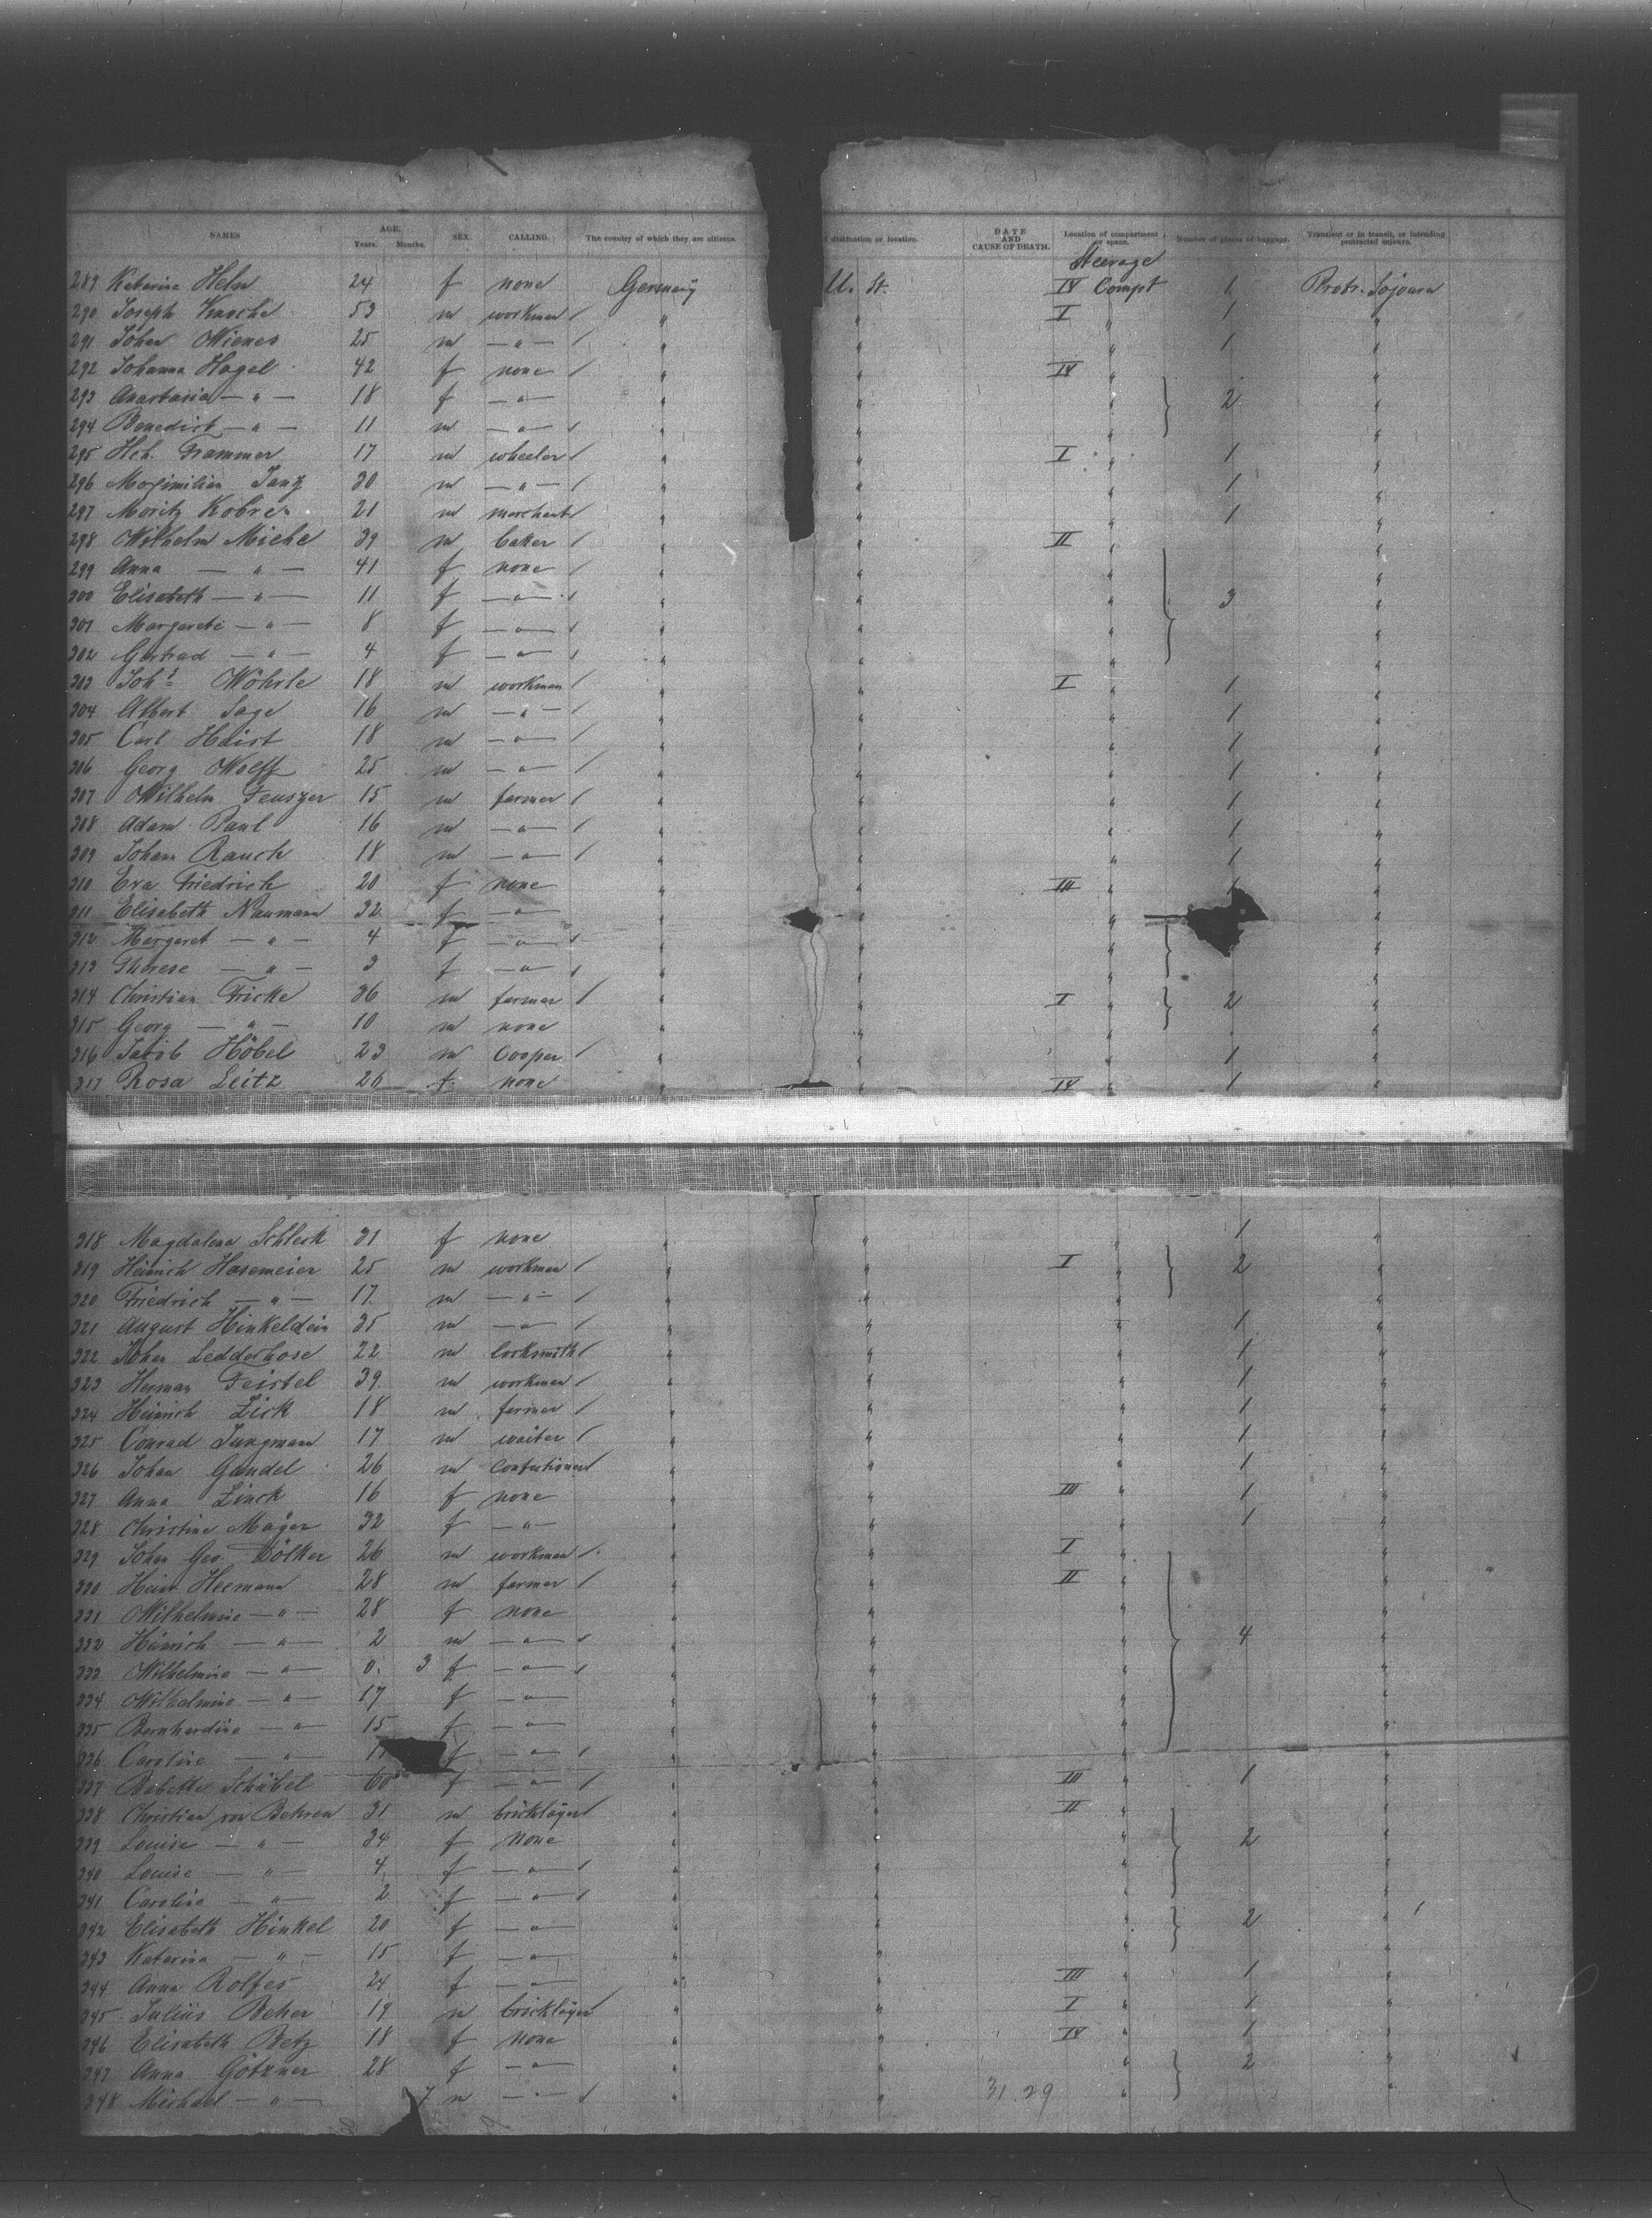 NAMES AGE. Years. Months. SEX. CALLING. The country of which they are citizens. destination or location. DATE AND CAUSE OF DEATH. Location of compartment or space. Number of pieces of baggage. Transient or in transit, or intending protracted sojourn.
Steerage
289 Katarina Helm 24 f none Germany U. St. IV Compt 1 Protr. Sojourn
290 Joseph Knoche 53 m workman / " " I " 1 "
291 Johan Wienes 25 m — " — / " " " 1 "
292 Johanna Hagel 42 f none / " " IV " "
293 Anastasia — " — 18 f — " — " " " 2 "
294 Benedict — " — 11 m — " — " " " "
295 Hch. Trammer 17 m wheeler / " " I " 1 "
296 Maximilian Janz 30 m — " — / " " " 1 "
297 Moritz Kobre 21 m merchant " " " 1 "
298 Wilhelm Miehe 39 m baker / " " II " "
299 Anna — " — 41 f none / " " " "
300 Elisabeth — " — 11 f — " — " " " 3 "
301 Margarete — " — 8 f — " — " " " "
302 Gertrud — " — 4 f — " — " " " "
303 Joh. Wöhrle 18 m workman / " " I " 1 "
304 Albert Sage 16 m — " — / " " " 1 "
305 Carl Haist 18 m — " — / " " " 1 "
306 Georg Wolff 25 m — " — / " " " 1 "
307 Wilhelm 15 m farmer / " " " 1 "
308 Adam Paul 16 m — " — / " " " 1 "
309 Johan Rauch 18 m — " — / " " " 1 "
310 Eva Friedrich 20 f none " " III " 1 "
311 Elisabeth Naumann 32 f — " — " " " "
312 Margaret — " — 4 f — " — " " " "
313 Therese — " — 3 f — " — " " " "
314 Christian Fricke 36 m farmer / " " I " 2 "
315 Georg — " — 10 m none " " " "
316 Jacob Höbel 23 m Cooper / " " " 1 "
317 Rosa Leitz 26 f. none " " IV " 1 "
318 Magdalena Schleck 31 f none " " " 1 "
319 Heinrich Hasemeier 25 m workman / " " I " 2 "
320 Friedrich — " — 17 m — " — / " " " "
321 August Hinkeldein 35 m — " — / " " " 1 "
322 Johan Ledderhose 22 m locksmith / " " " 1 "
323 Herman Feistel 39 m workman / " " " 1 "
324 Heinrich Zick 18 m farmer / " " " 1 "
325 Conrad Jungmann 17 m waiter / " " " 1 "
326 Johan Gandel 26 m Confectioner / " " " 1 "
327 Anna Zinck 16 f none " " III " 1 "
328 Christine Mayer 32 f — " — " " " 1 "
329 Johan Geo. Völker 26 m workman / " " I " "
330 Heinr. Heemann 28 m farmer / " " II " "
331 Wilhelmine — " — 28 f none " " " "
332 Heinrich — " — 2 m — " — " " " 4 "
333 Wilhelmine — " — 0. 3 f — " — " " " "
334 Wilhelmine — " — 17 f — " — " " " "
335 Bernherdine — " — 15 f — " — " " " "
336 Caroline — " — f — " — / " " " "
337 Babette Schübel 60 f — " — / " " III " 1 "
338 Christian von Behren 31 m bricklayer / " " II " "
339 Louise — " — 34 f none " " " 2 "
340 Louise — " — 4 f — " — / " " " "
341 Caroline — " — 2 f — " — / " " " "
342 Elisabeth Hinkel 20 f — " — " " " 2 "
343 Katarina — " — 15 f — " — " " " "
344 Anna Rolfes 24 f — " — " " III " 1 "
345 Julius Beker 19 m bricklayer / " " I " 1 "
346 Elisabeth Betz 18 f none " " IV " 1 "
347 Anna Götzner 28 f — " — " " " 2 "
348 Michael — " — 7 m — " — / " " 31.29 " "